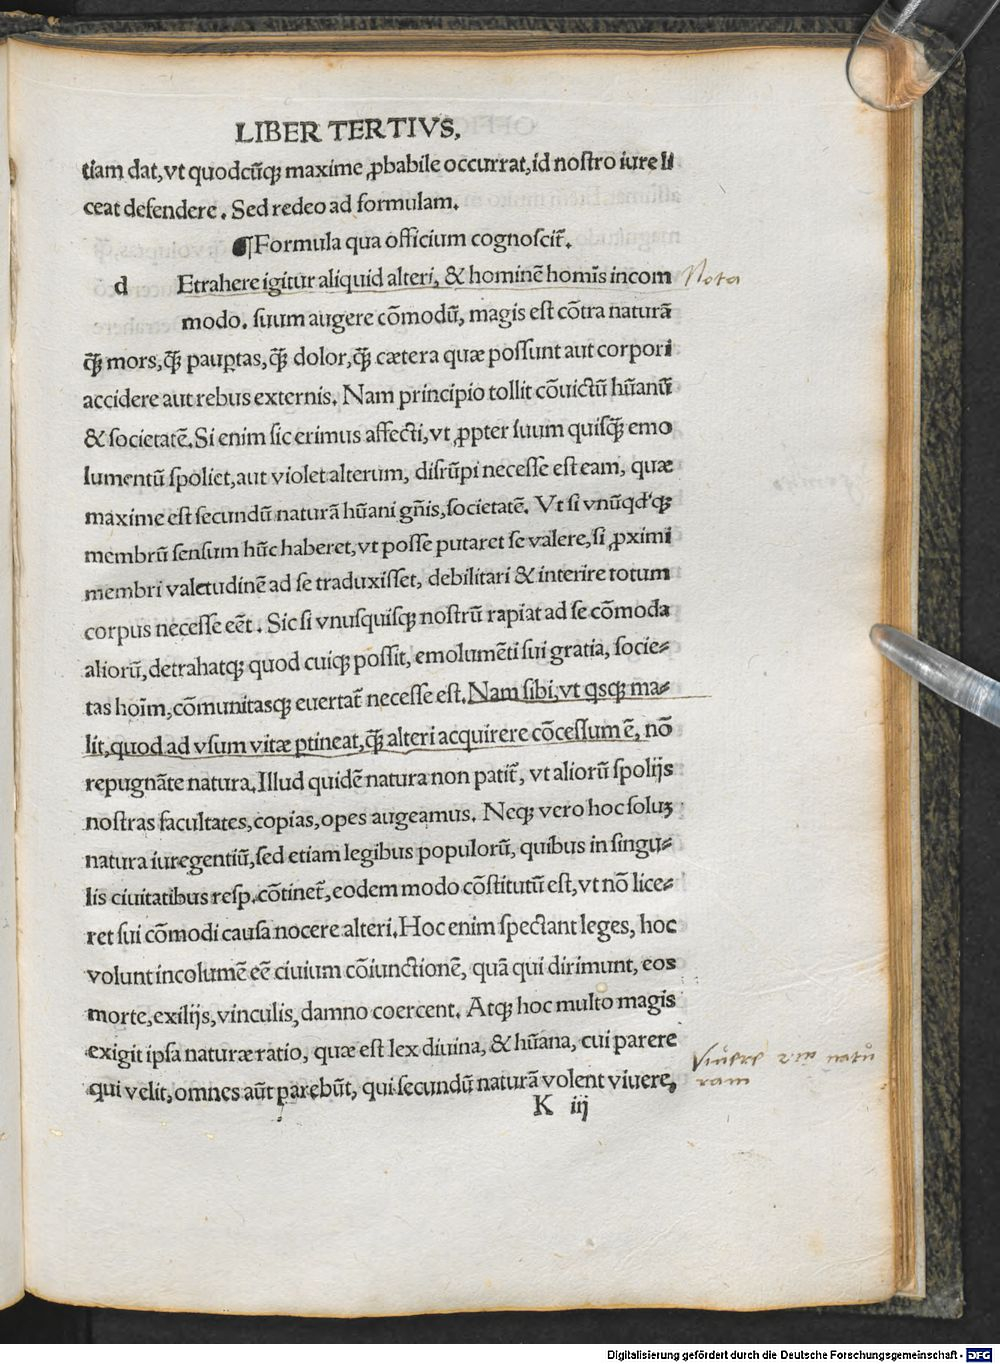 LIBER TERTIVS,
tiam dat, vt quodcũqꝫ maxime ꝓbabile occurrat, id nostro iure li
ceat defendere. Sed redeo ad formulam.
¶Formula qua officium cognoscit᷑.
d Etrahere igitur aliquid alteri, & hominẽ homĩs incom Nota
modo. suum augere cõmodũ, magis est cõtra naturã
q̃ꝫ mors, q̃ꝫ paup̱tas, q̃ꝫ dolor, q̃ꝫ cætera quæ possunt aut corpori
accidere aut rebus externis. Nam principio tollit cõuictũ hũanũ
& societatẽ. Si enim sic erimus affecti, vt ꝓpter suum quisq̃ꝫ emo
lumentũ spoliet, aut violet alterum, disrũpi necesse est eam, quæ
maxime est secundũ naturã hũani gñis, societatẽ. Vt si vnũqd'qꝫ
membrũ sensum hũc haberet, vt posse putaret se valere, si ꝓximi
membri valetudinẽ ad se traduxisset, debilitari & interire totum
corpus necesse eẽt. Sic si vnusquisqꝫ nostrũ rapiat ad se cõmoda
aliorũ, detrahatqꝫ quod cuiqꝫ possit, emolumẽti sui gratia, socie-
tas hoĩm, cõmunitasqꝫ euertat᷑ necesse est. Nam sibi, vt qsqꝫ ma-
lit, quod ad vsum vitæ p̱tineat, q̃ꝫ alteri acquirere cõcessum ẽ, nõ
repugnãte natura. Illud quidẽ natura non patit᷑, vt aliorũ spolijs
nostras facultates, copias, opes augeamus. Neqꝫ vero hoc soluꝫ
natura iure gentiũ, sed etiam legibus populorũ, quibus in singu-
lis ciuitatibus resp. cõtinet᷑, eodem modo cõstitutũ est, vt nõ lice-
ret sui cõmodi causa nocere alteri. Hoc enim spectant leges, hoc
volunt incolumẽ eẽ ciuium cõiunctionẽ, quã qui dirimunt, eos
morte, exilijs, vinculis, damno coercent. Atqꝫ hoc multo magis
exigit ipsa naturæ ratio, quæ est lex diuina, & hũana, cui parere
qui velit, omnes aũt parebũt, qui secundũ naturã volent viuere,
Viuere natu
ram
K iij
Digitalisierung gefördert durch die Deutsche Forschungsgemeinschaft - DFG